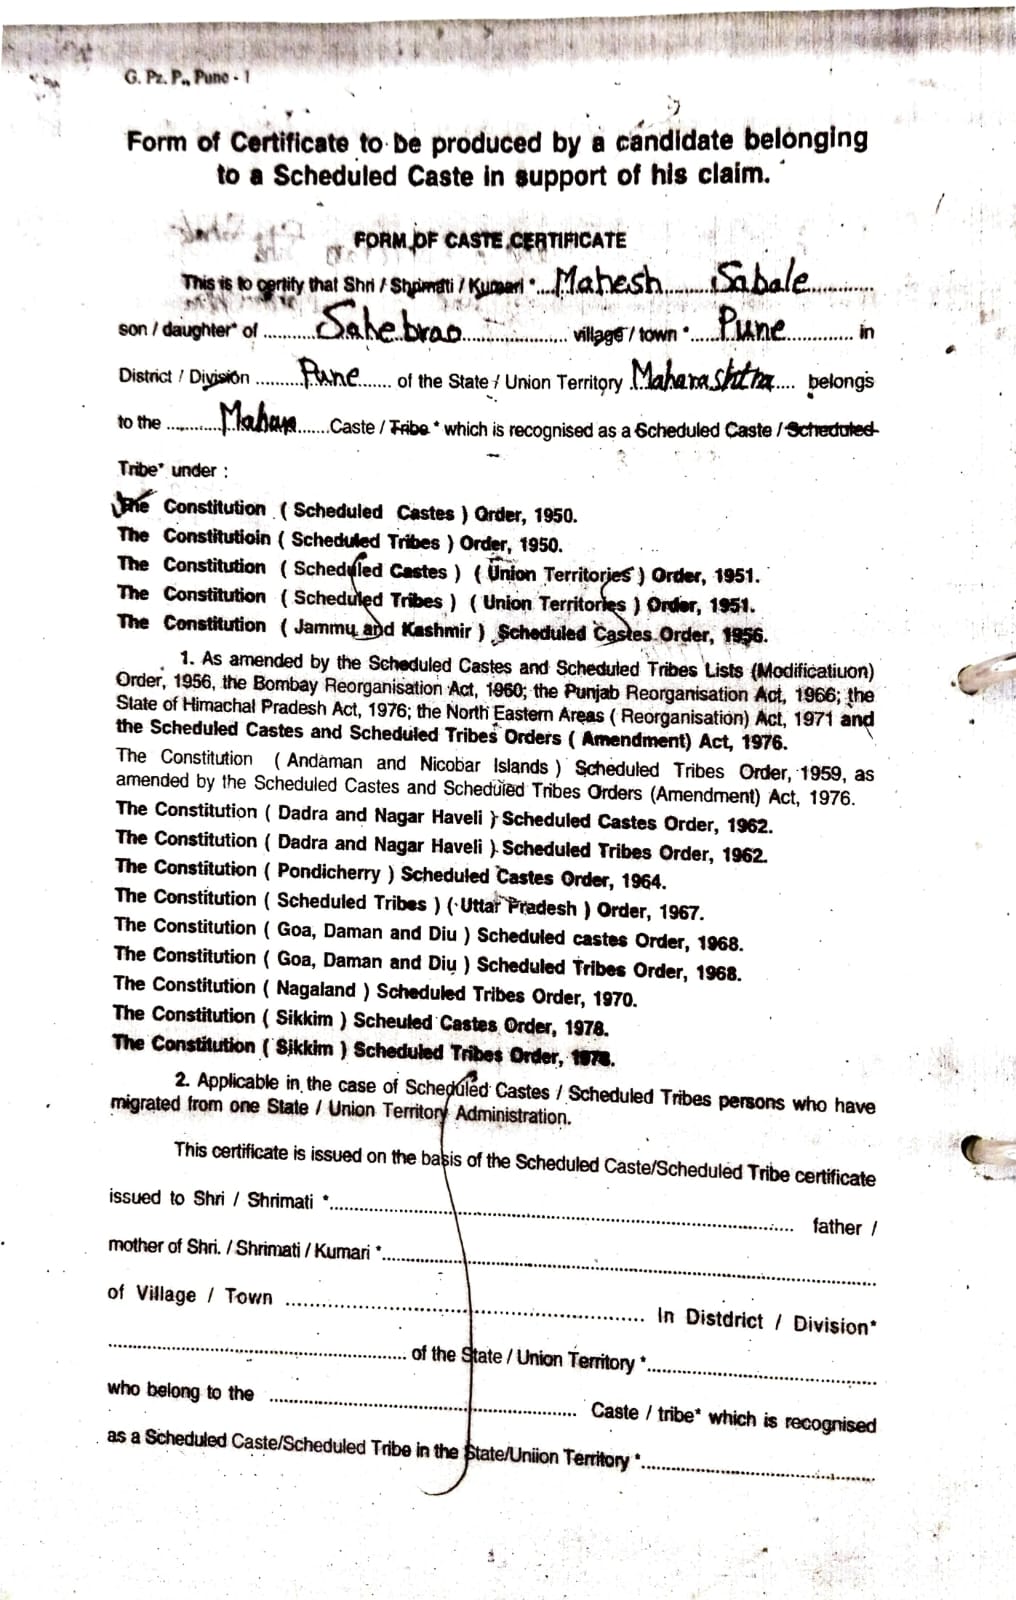 G. Pz. P., Pune - 1
Form of Certificate to be produced by a candidate belonging
to a Scheduled Caste in support of his claim.
FORM OF CASTE CERTIFICATE
This is to certify that Shri / Shrimati / Kumari *....Mahesh........Sabale............
son / daughter* of ..........Sahebrao.................... village / town *......Pune............. in
District / Division .........Pune...... of the State / Union Territory Maharashtra.... belongs
to the ...........Mahara......Caste / Tribe * which is recognised as a Scheduled Caste / Scheduled
Tribe* under :
The Constitution ( Scheduled Castes ) Order, 1950.
The Constitutioin ( Scheduled Tribes ) Order, 1950.
The Constitution ( Scheduled Castes ) ( Union Territories ) Order, 1951.
The Constitution ( Scheduled Tribes ) ( Union Territories ) Order, 1951.
The Constitution ( Jammu and Kashmir ) Scheduled Castes Order, 1956.
1. As amended by the Scheduled Castes and Scheduled Tribes Lists (Modificatiuon)
Order, 1956, the Bombay Reorganisation Act, 1960; the Punjab Reorganisation Act, 1966; the
State of Himachal Pradesh Act, 1976; the North Eastern Areas ( Reorganisation) Act, 1971 and
the Scheduled Castes and Scheduled Tribes Orders ( Amendment) Act, 1976.
The Constitution ( Andaman and Nicobar Islands ) Scheduled Tribes Order, 1959, as
amended by the Scheduled Castes and Scheduled Tribes Orders (Amendment) Act, 1976.
The Constitution ( Dadra and Nagar Haveli ) Scheduled Castes Order, 1962.
The Constitution ( Dadra and Nagar Haveli ) Scheduled Tribes Order, 1962.
The Constitution ( Pondicherry ) Scheduled Castes Order, 1964.
The Constitution ( Scheduled Tribes ) ( Uttar Pradesh ) Order, 1967.
The Constitution ( Goa, Daman and Diu ) Scheduled castes Order, 1968.
The Constitution ( Goa, Daman and Diu ) Scheduled Tribes Order, 1968.
The Constitution ( Nagaland ) Scheduled Tribes Order, 1970.
The Constitution ( Sikkim ) Scheuled Castes Order, 1978.
The Constitution ( Sikkim ) Scheduled Tribes Order, 1978.
2. Applicable in the case of Scheduled Castes / Scheduled Tribes persons who have
migrated from one State / Union Territory Administration.
This certificate is issued on the basis of the Scheduled Caste/Scheduled Tribe certificate
issued to Shri / Shrimati *.......................................................... father /
mother of Shri. / Shrimati / Kumari *..........................................................
of Village / Town .......................................................... In Distdrict / Division*
.................................................. of the State / Union Territory *........................................
who belong to the .................................................. Caste / tribe* which is recognised
as a Scheduled Caste/Scheduled Tribe in the State/Uniion Territory *........................................